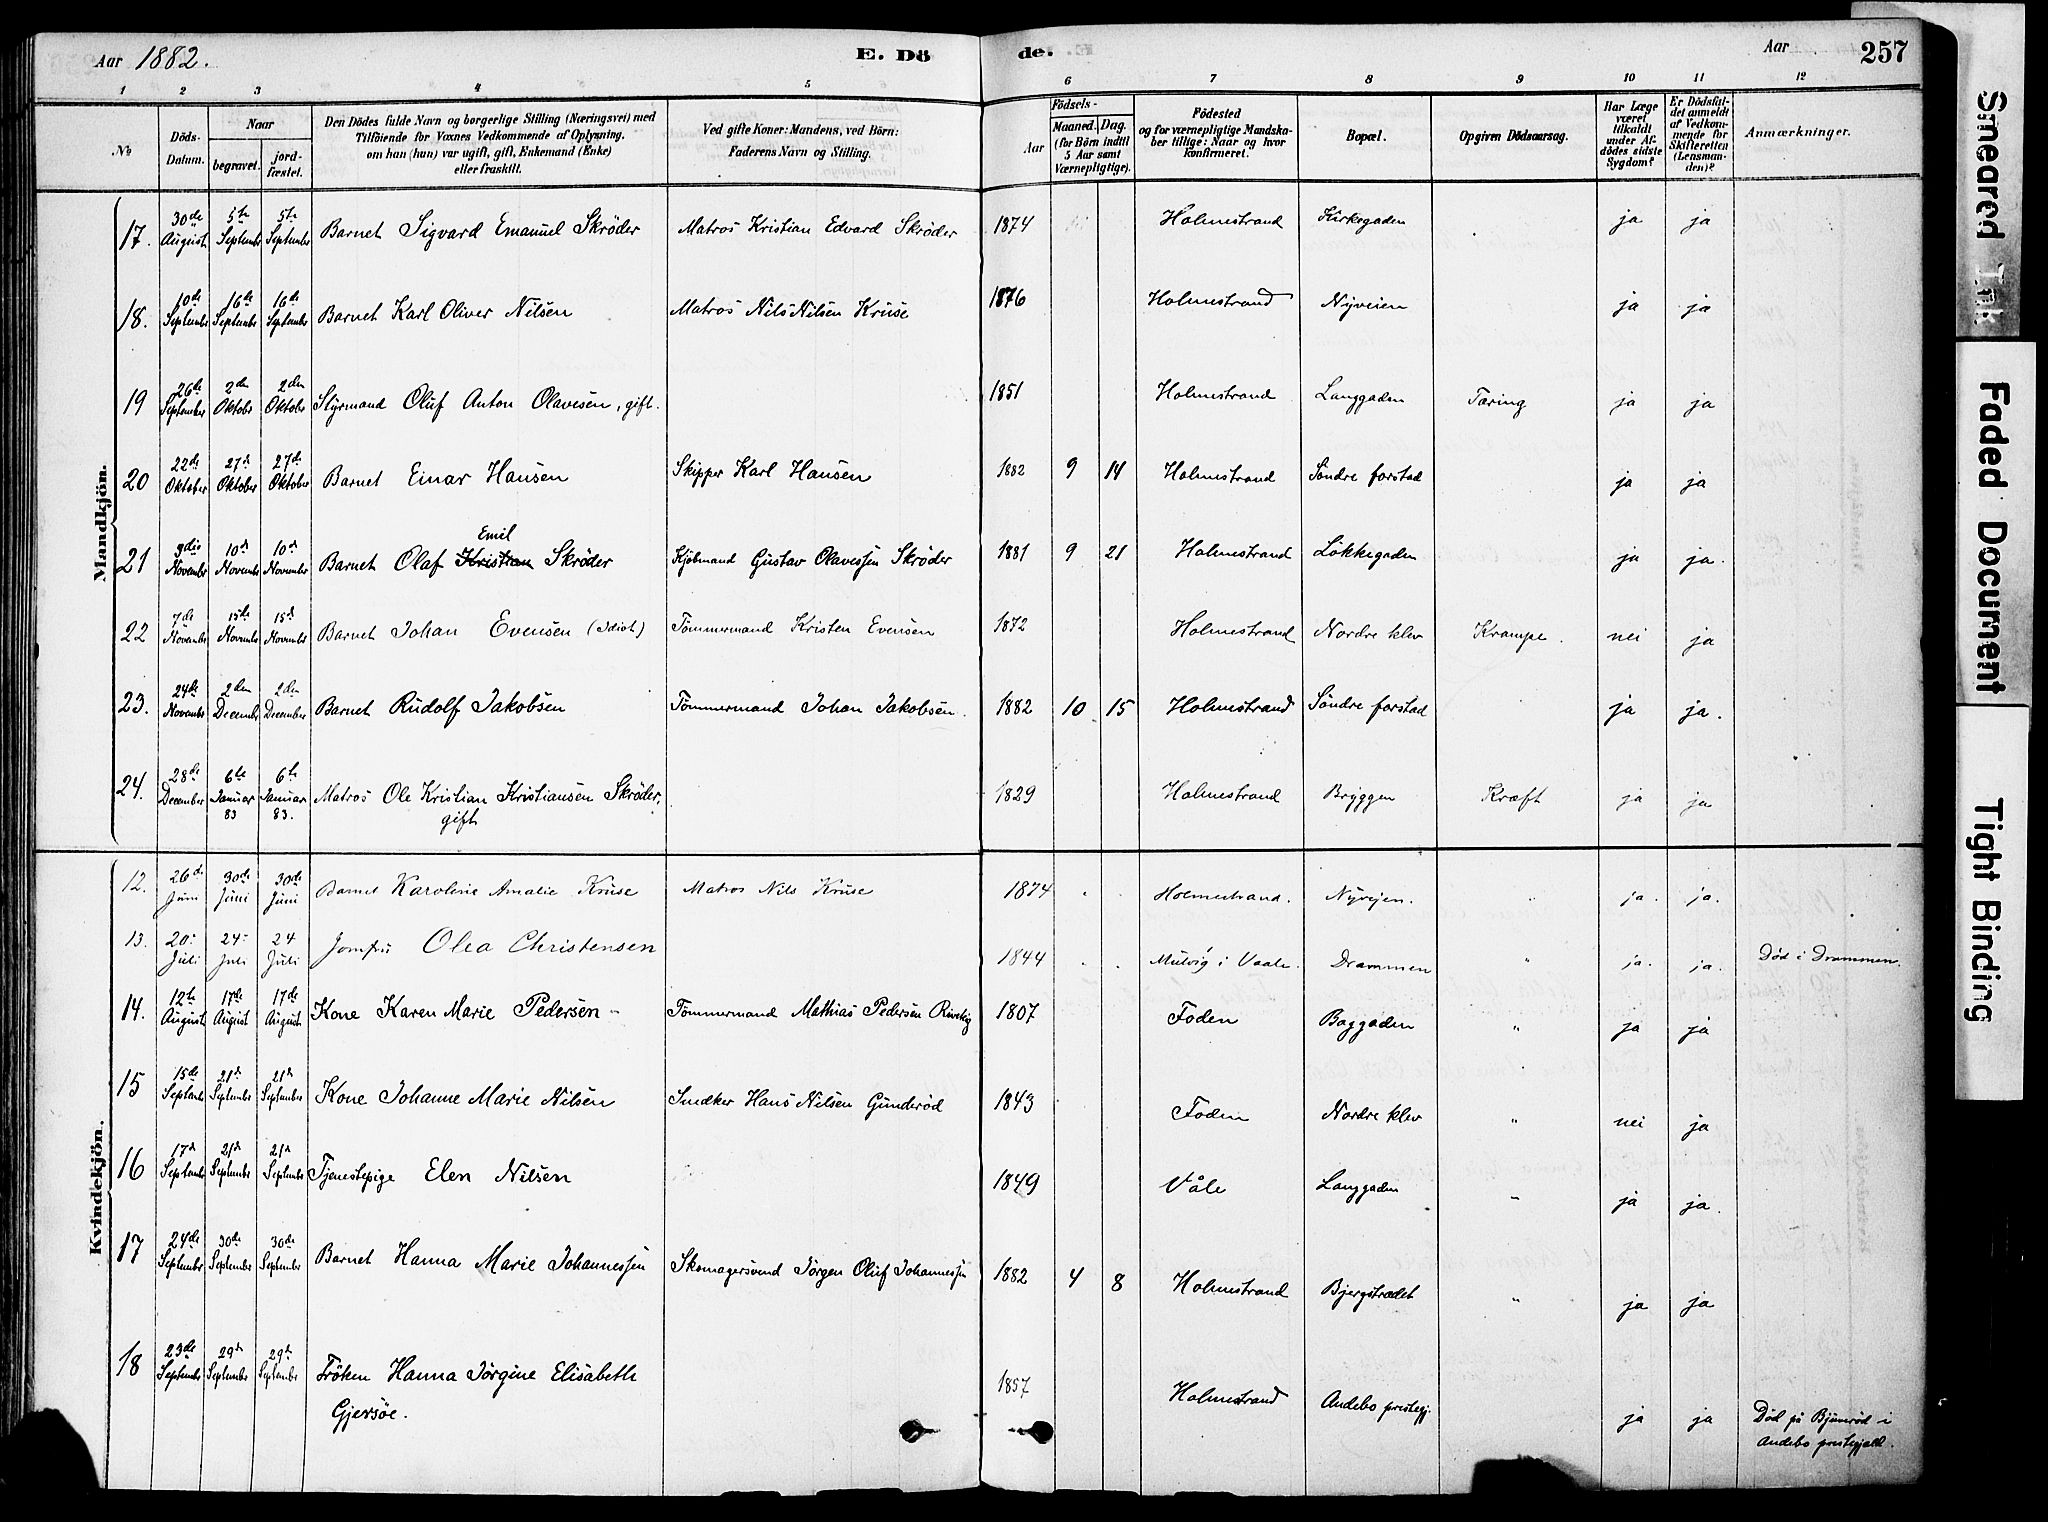 Aar 1882. E. Dö de. Aar 257
1 2 3 4 5 6 7 8 9 10 11 12
No Döds-Datum. Naar begravet. jord-fæstet. Den Dödes fulde Navn og borgerlige Stilling (Næringsvei) med Tilföiende for Voxnes Vedkommende af Oplysning, om han (hun) var ugift, gift, Enkemand (Enke) eller fraskilt. Ved gifte Koner: Mandens, ved Börn: Faderens Navn og Stilling. Födsels- Aar Maaned. Dag. (for Börn indtil 5 Aar samt Værnepligtige). Födested og for værnepligtige Mandska-ber tillige: Naar og hvor konfirmeret. Bopæl. Opgiven Dödsaarsag. Har Læge været tilkaldt under Af-dödes sidste Sygdom? Er Dödsfal-det anmeldt af Vedkom-mende for Skifteretten (Lensman-den)? Anmærkninger.
Mandkjön.
17. 30de August 5te September 5te September Barnet Sigvard Emanuel Skrøder Matros Kristian Edvard Skrøder 1874 Holmestrand Kirkegaden ja ja
18. 10de September 16de September 16de September Barnet Karl Oliver Nilsen Matros Nils Nilsen Kruse 1876 Holmestrand Nyveien ja ja
19 26de September 2den Oktober 2den Oktober Styrmand Oluf Anton Olavesen, gift. 1851 Holmestrand Langgaden Tæring ja ja
20 22de Oktober 27de Oktober 27de Oktober Barnet Einar Hansen Skipper Karl Hansen 1882 9 14 Holmestrand Söndre forstad ja ja
21 3die November 10de November 10de November Barnet Olaf Kristian Emil Skrøder Kjöbmand Gustav Olavessen Skrøder 1881 9 21 Holmestrand Lökkegaden ja ja.
22 7de November 15de November 15de November Barnet Johan Evensen (Idiot) Tömmermand Kristen Evensen 1872 Holmestrand Nordre klev Krampe. nei ja
23. 24de November 2den December 2den December Barnet Rudolf Jakobsen Tömmermand Johan Jakobsen. 1882 10 15 Holmestrand Söndre forstad ja ja.
24. 28de December 6te Januar 83 6te Januar 83. Matros Ole Kristian Kristiansen Skrøder, gift 1829 Holmestrand Bryggen Kræft ja ja
Kvindekjön.
12. 26de Juni 30de Juni 30de Juni Barnet Karoline Amalie Kruse Matros Nils Kruse 1874 Holmestrand. Nyvejen. " ja. ja.
13. 20 Juli 24 Juli 24 Juli Jomfru Olea Christensen 1844 Mulvig i Vaale. Drammen " ja. ja. Död i Drammen.
14. 12te August 17de August 17de August Kone Karen Marie Pedersen Tömmermand Mathias Pedersen 1807 Foden Baggaden " ja ja
15 15de September 21de September 21de September Kone Johanne Marie Nilsen Snedker Hans Nilsen Gunderød 1843 Foden Nordre klev " nei ja
16 17de September 21de September 21de September Tjenestepige Elen Nilsen 1849 Våle Langgaden " ja ja.
17 24de September 30de September 30de September Barnet Hanna Marie Johannessen Skomagersvend Jörgen Oluf Johannessen 1882 4 8 Holmestrand Bjergstrædet " ja ja
18 23de September 29de September 29de September Fröken Hanna Jörgine Elisabeth Gjersøe. 1857 Holmestrand Andebo prestegj. ja ja Död på Bjünerød i Andebo prestegjeld.
Smeared Ink
Faded Document
Tight Binding